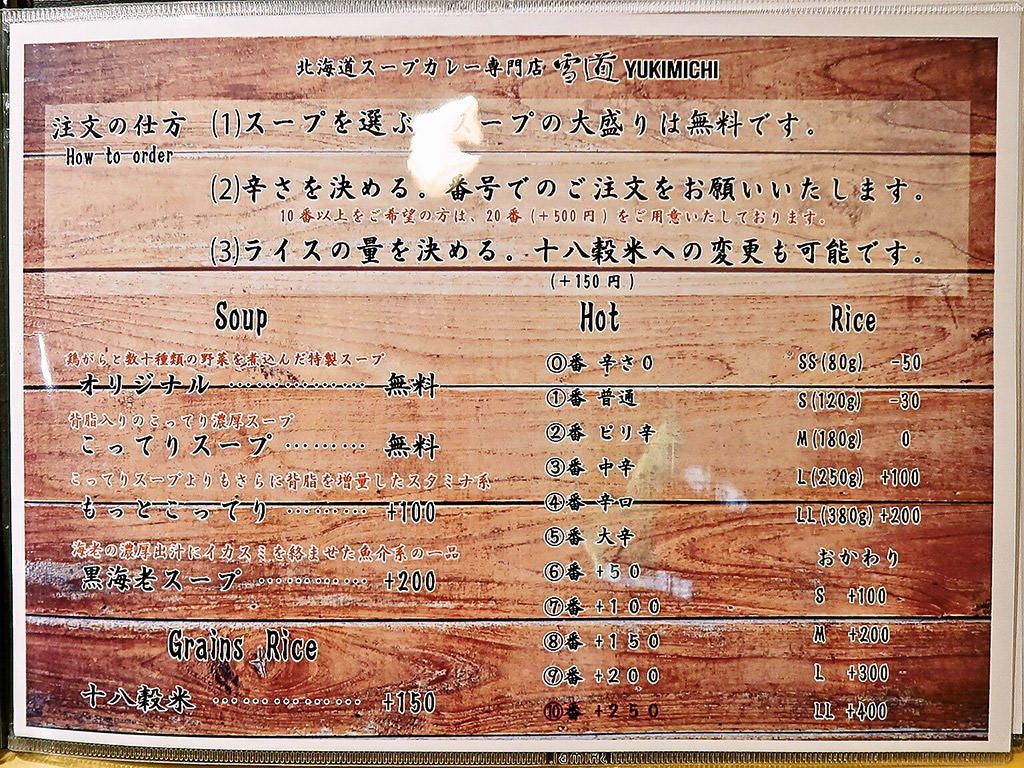 北海道スープカレー専門店 雪道 YUKIMICHI
注文の仕方 (1)スープを選ぶ ープの大盛りは無料です。
How to order
(2)辛さを決める。番号でのご注文をお願いいたします。
10番以上をご希望の方は、20番(+500円)をご用意いたしております。
(3)ライスの量を決める。十八穀米への変更も可能です。
(+150円)
Soup
鶏がらと数十種類の野菜を煮込んだ特製スープ
オリジナル ………………… 無料
背脂入りのこってり濃厚スープ
こってりスープ ……… 無料
こってりスープよりもさらに背脂を増量したスタミナ系
もっとこってり ……… +100
海老の濃厚出汁にイカスミを絡ませた魚介系の一品
黒海老スープ ………… +200
Grains Rice
十八穀米 ……………… +150
Hot
⓪番 辛さ0
①番 普通
②番 ピリ辛
③番 中辛
④番 辛口
⑤番 大辛
⑥番 +50
⑦番 +100
⑧番 +150
⑨番 +200
⑩番 +250
Rice
SS(80g) -50
S(120g) -30
M(180g) 0
L(250g) +100
LL(380g) +200
おかわり
S +100
M +200
L +300
LL +400